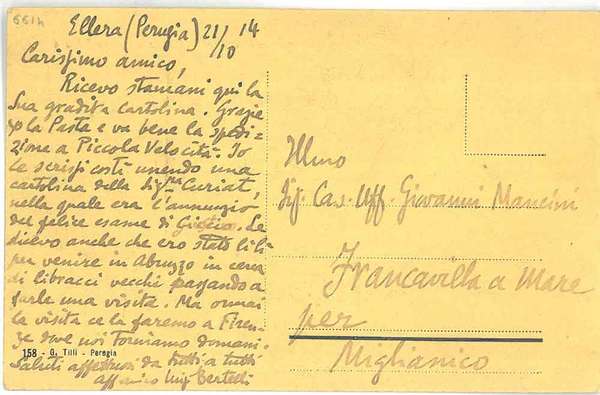 5514
Ellera (Perugia) 21/10 14
Carissimo amico,
Ricevo stamani qui la
Sua gradita cartolina. Grazie
la Pasta e va bene la spedi-
zione a Piccola Velocità. Io
Le scrissi costì unendo una
cartolina della Sig.na Curiat,
nella quale era l'annunzio
del felice esame di Le
dicevo anche che ero stato lì lì
per venire in Abruzzo in cerca
di libracci vecchi pensando a
farle una visita. Ma ormai
la visita ce la faremo a Firen-
ze dove noi torniamo domani.
Saluti affettuosi da tutti a tutti
aff. amico Luigi Bertelli
158 - G. Tilli - Perugia
Illmo
Sig. Cav. Uff. Giovanni Mancini
Francavilla a Mare
per
Miglianico